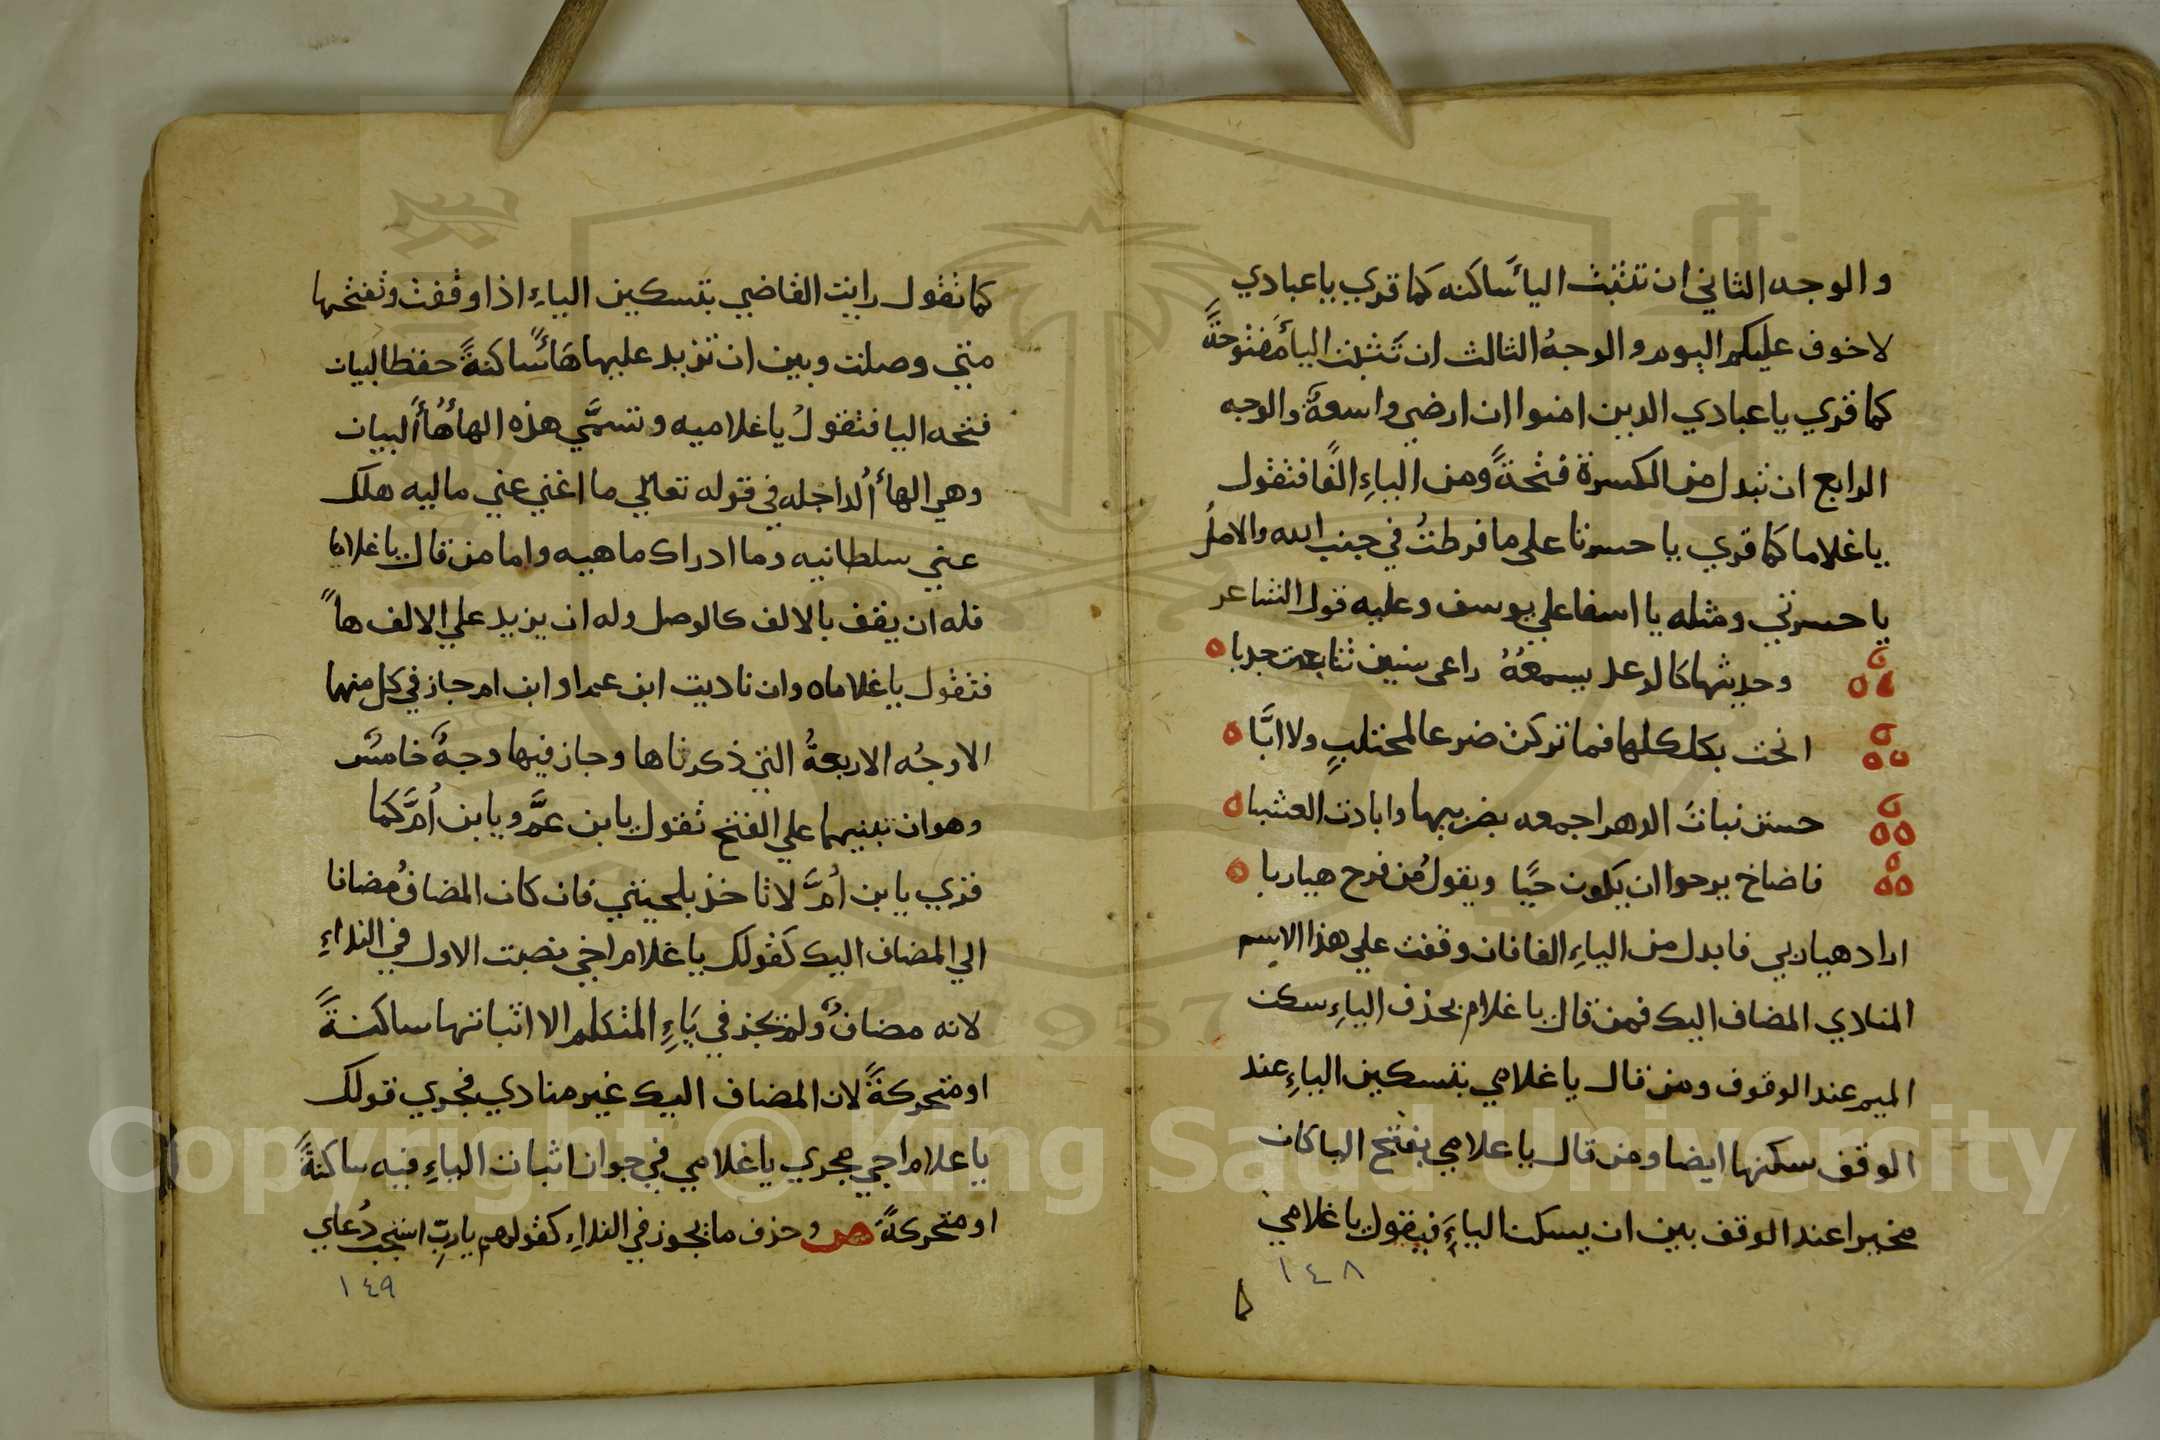 والوجه الثاني ان تثبث اليأَ ساكنه كما قري يا عبادي
لا خوف عليكم اليوم والوجهُ الثالث ان تَثبت اليأَ مَفتوحَةً
كما قري يا عبادي الدين امنوا ان ارضي واسعةٌ والوجه
الرابع ان تبدل من الكسرة فتحةً ومن الياءِ الفًا فتقول
يا غلاما كما قري يا حسرتا على ما فرطتُ في جنب الله والاصلُ
يا حسرتي ومثله يا اسفا علي يوسف وعليه قول الشاعر
وحديثها كالرعد يسمعُهُ راعى سنين تتابعت جدبا
انحت بكلكلها فما تركن ضرعا لمحتلبٍ ولا ابَّا
حسن نباتُ الدهر اجمعه بضريبها وابادت العشبا
فاضاخ يرجوا ان يكون حيًا ويقولُ من فرح هياربا
اراد هياربي فابدل من الياءِ الفا فان وقفت علي هذا الاسم
المنادي المضاف اليك فمن قال يا غلام بحذف الياءِ سكن
الميم عند الوقوف ومن قال يا غلامي بتسكين الياءِ عند
الوقف سكنها ايضا ومن قال يا علامي بفتح اليا كان
مخيرا عند الوقف بين ان يسكن الياءَِ فيقول يا غلامي
١٤٨
كما تقول رايت القاضي بتسكين الياءِ اذا وقفت وتفتحها
متي وصلت وبين ان تزيد عليها هَاءً ساكنةً حفظا لبيان
فتحه اليا فتقولُ يا غلاميه وتسمَّي هذه الهأُ هُأَ البيان
وهي الهأُ الداخله في قوله تعالي ما اغني عني ماليه هلك
عني سلطانيه وما ادراك ماهيه واما من قال يا غلاما
فله ان يقف بالالف كالوصل وله ان يزيد علي الالف هاً
فتقول يا غلاماه وان ناديت ابن عم او ابن ام جاز في كل منهما
الاوجُه الاربعةُ التي ذكرناها وجاز فيها وجهٌ خامسٌ
وهو ان تبنيهما علي الفتح تقول يا بن عمَّ ويا بن اُمَّ كما
قري يا بن اُمَّ لا تاخذ بلحيتي فان كان المضافُ مُضافا
الي المضاف اليك كقولك يا غلام اخي نصبت الاول في النداءِ
لانه مضافٌ ولم يجز في ياءِ المتكلم الا اثباتها ساكنةً
او متحركةً لان المضاف اليك غير منادي فجري قولك
يا علام اخي مجري يا غلامي في جواز اثبات الياءِ فيه ساكنةً
او متحركةً ص وحذف ما يجوز في النداءِ كقولهم يا ربِّ استجب دُعاي
١٤٩
Copyright © King Saud University
1957